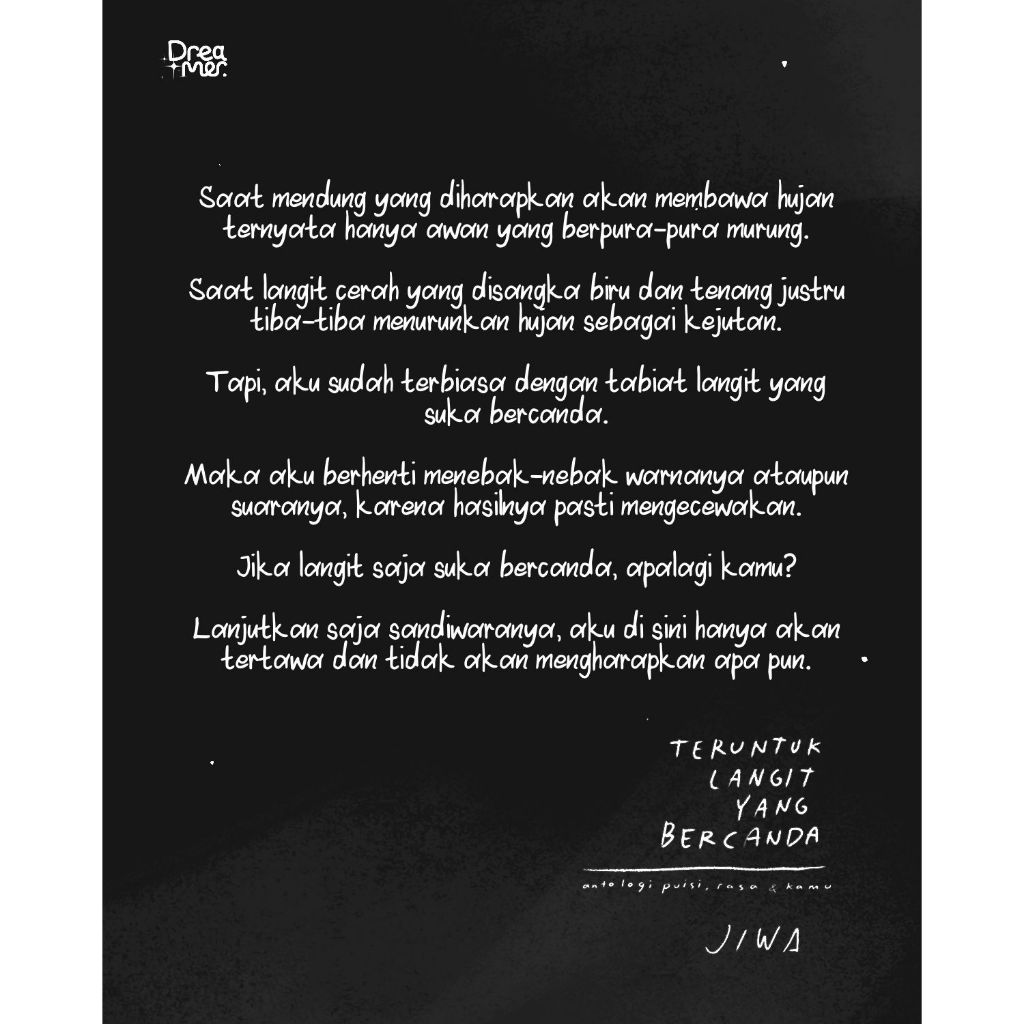 Drea
mer.
Saat mendung yang diharapkan akan membawa hujan
ternyata hanya awan yang berpura-pura murung.
Saat langit cerah yang disangka biru dan tenang justru
tiba-tiba menurunkan hujan sebagai kejutan.
Tapi, aku sudah terbiasa dengan tabiat langit yang
suka bercanda.
Maka aku berhenti menebak-nebak warnanya ataupun
suaranya, karena hasilnya pasti mengecewakan.
Jika langit saja suka bercanda, apalagi kamu?
Lanjutkan saja sandiwaranya, aku di sini hanya akan
tertawa dan tidak akan mengharapkan apa pun.
TERUNTUK
LANGIT
YANG
BERCANDA
antologi puisi, rasa & kamu
JIWA